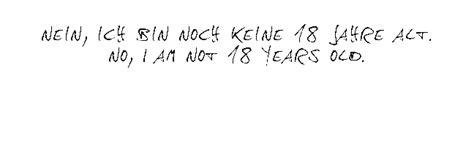 NEIN, ICH BIN NOCH KEINE 18 JAHRE ALT.
NO, I AM NOT 18 YEARS OLD.